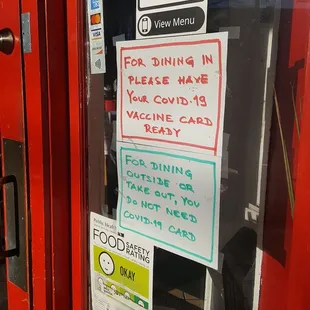 View Menu
FOR DINING IN
PLEASE HAVE
YOUR COVID-19
VACCINE CARD
READY
FOR DINING
OUTSIDE OR
TAKE OUT, YOU
DO NOT NEED
COVID-19 CARD
FOOD
SAFETY
RATING
OKAY